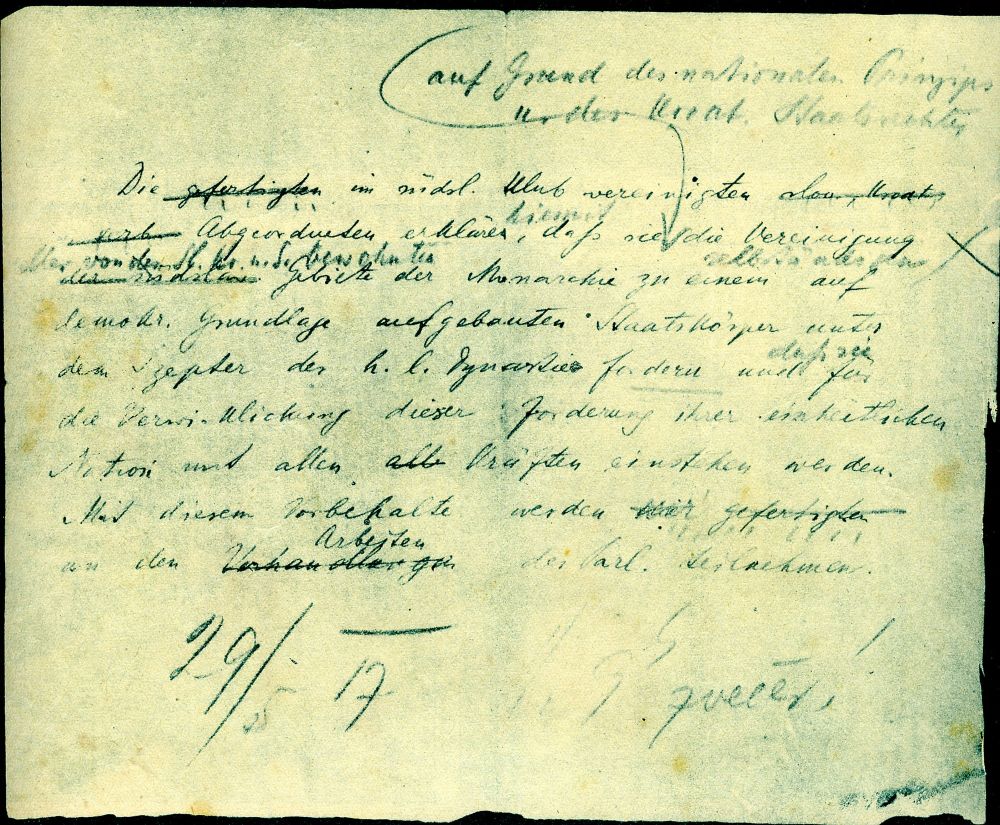 auf Grund des nationalen Prinzips
u. des kroat. Staatsrechtes
Die gefertigten im südsl. Klub vereinigten slov., kroat.,
serb. Abgeordneten erklären, daß sie die Vereinigung
hiemit
aller von den Sl. Kr. u. S. bewohnten
selbständigen
der südslav. Gebiete der Monarchie zu einem auf
demokr. Grundlage aufgebauten Staatskörper unter
daß sie
dem Szepter der h. l. Dynastie fordern und für
die Verwirklichung dieser Forderung ihrer einheitlichen
Nation mit allen alle Kräften einstehen werden.
Mit diesem Vorbehalte werden wir gefertigten
Arbeiten
an den Verhandlungen des Parl. teilnehmen.
29/5 17